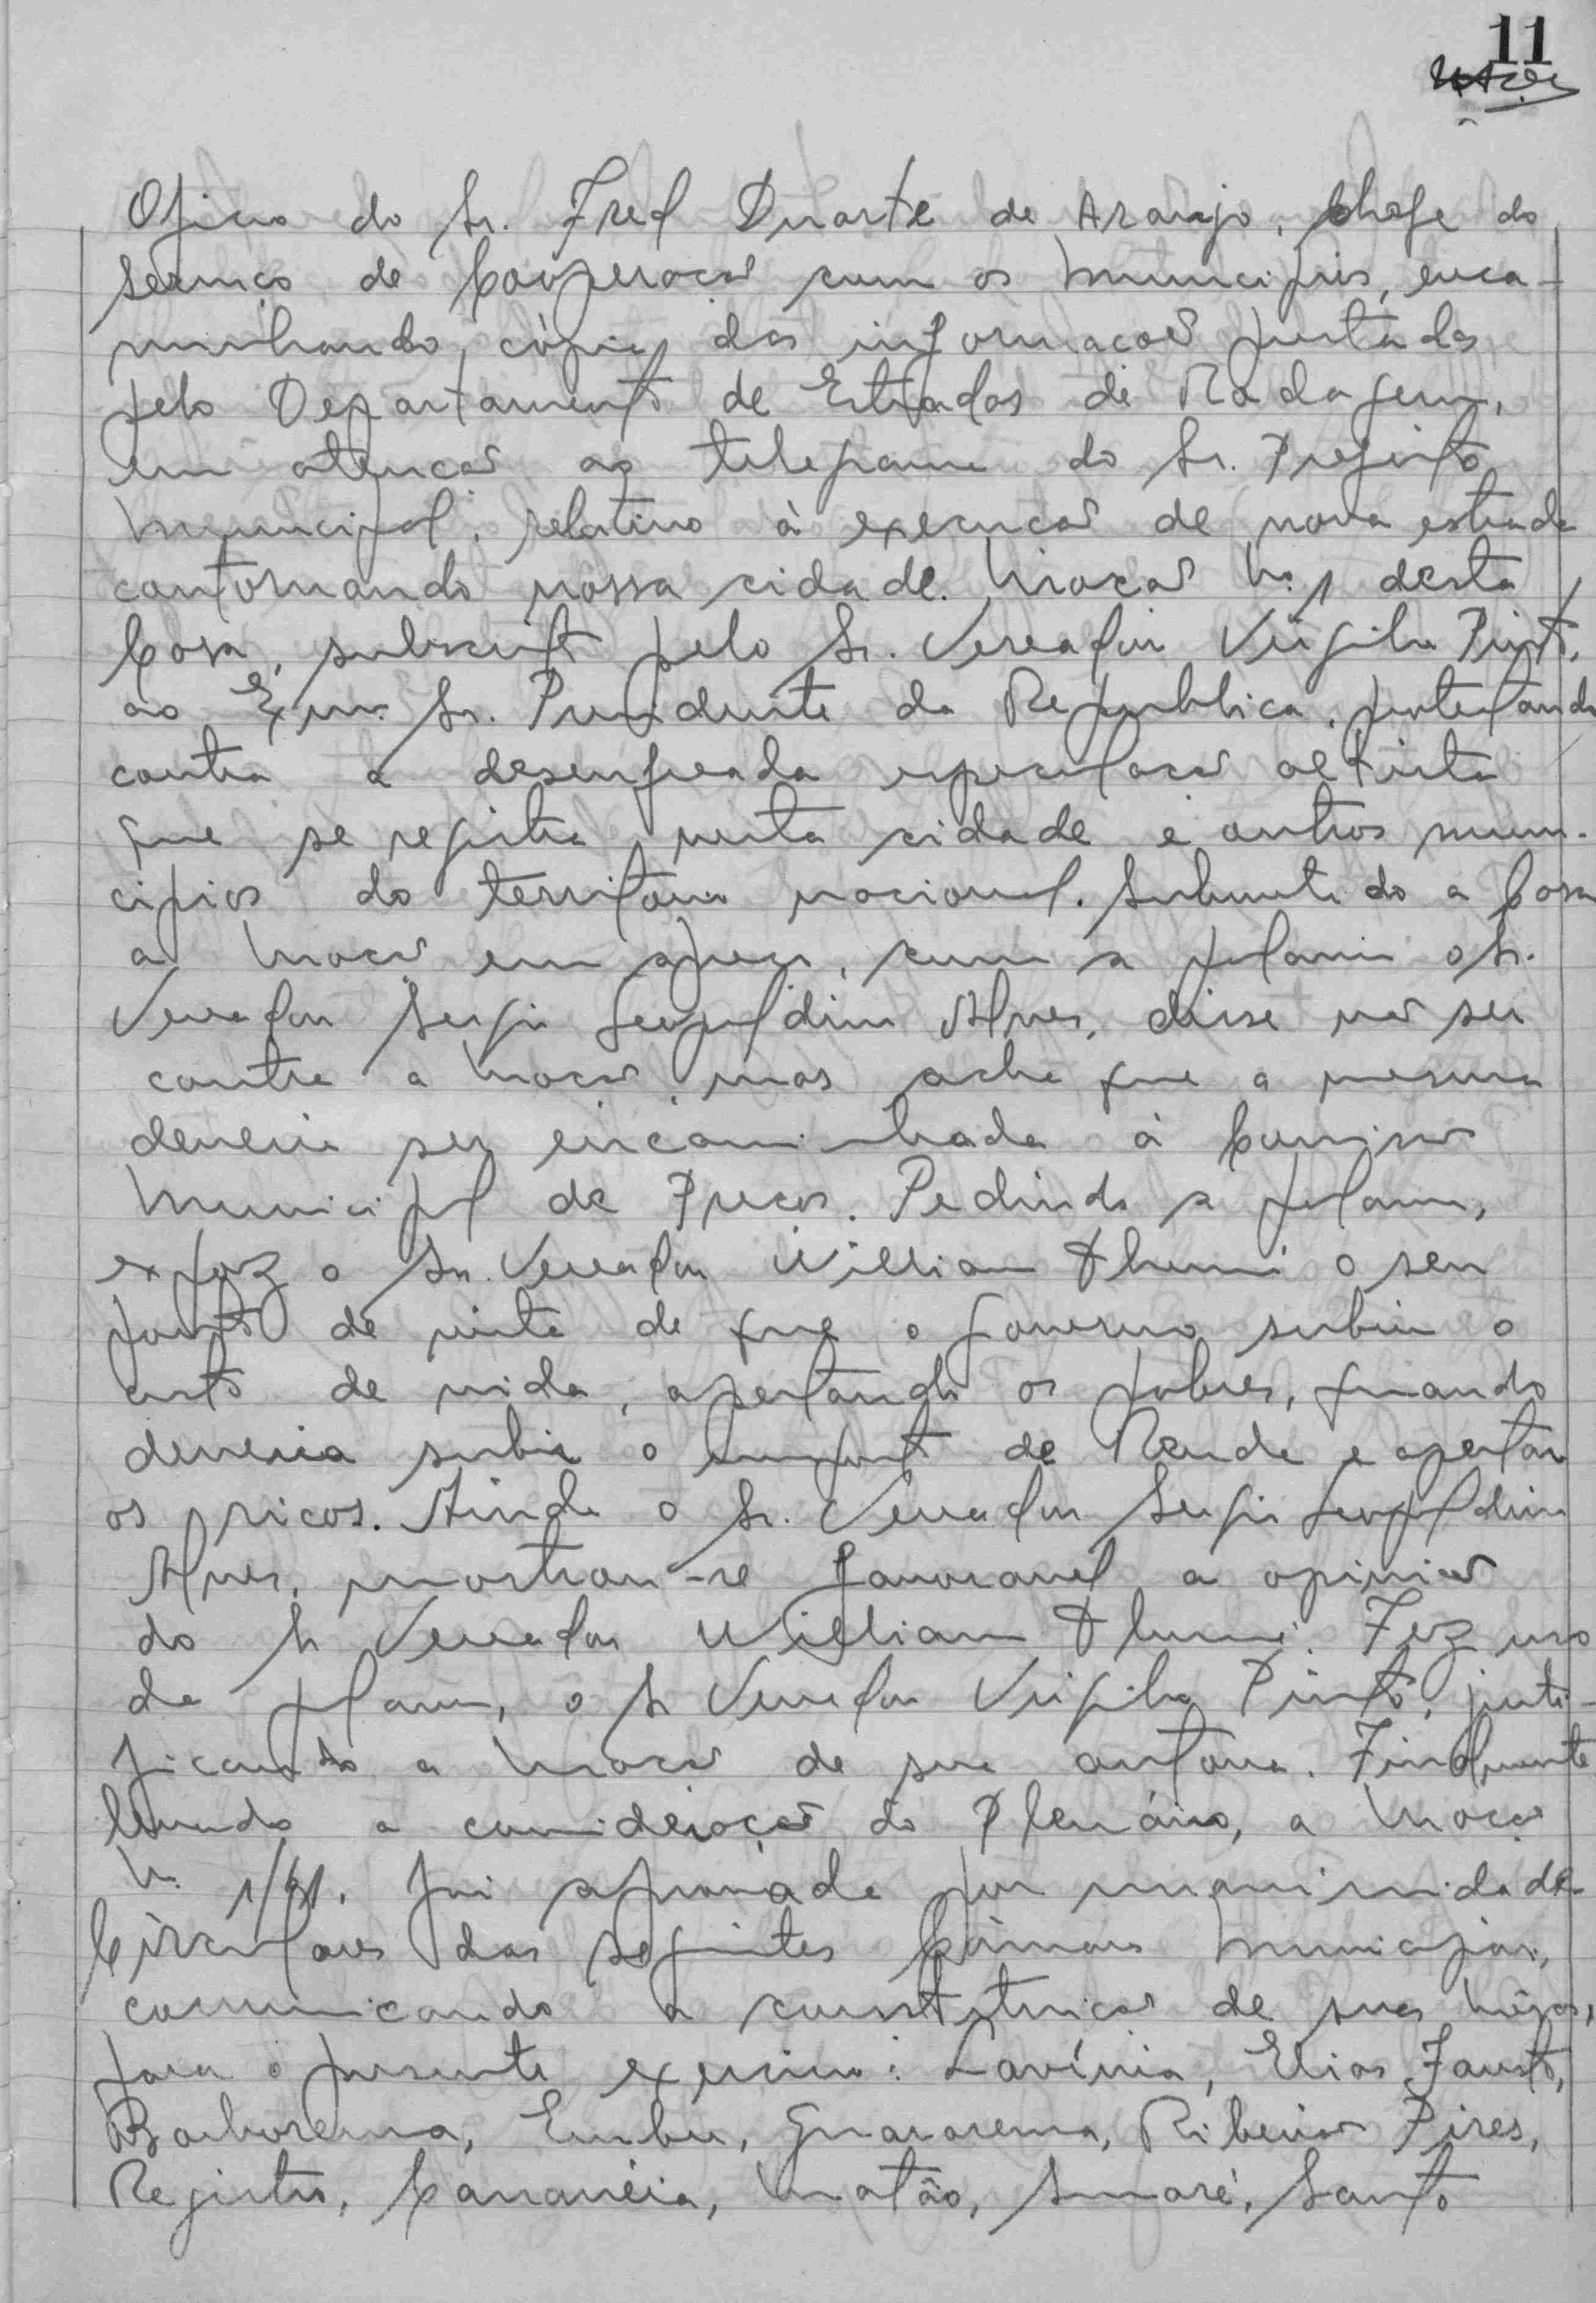 11
Oficio do Sr. Fred Duarte de Araujo, Chefe do
serviço de Cooperação com os Municipios, enca-
minhando, cópia das informações prestadas
pelo Departamento de Estradas de Rodagem,
em atenção ao telegrama do Sr. Prefeito
Municipal, relativo à execução de nova estrada
contornando nossa cidade. Moção Nº 1 desta
Casa, subscrito pelo Sr. Vereador Virgilio Pinto,
ao Exmo. Sr. Presidente da Republica, protestando
contra a desenfreada especulação altista
que se registra nesta cidade e outros muni-
cipios do território nacional. Submetido a Casa
a Moção em apreço, com a palavra o Sr.
Vereador Sergio Leopoldino Alves, disse não ser
contra a Moção, mas acha que a mesma
deveria ser encaminhada à Comissão
Municipal de Preços. Pedindo a palavra,
expoz o Sr. Vereador Willian o seu
ponto de vista de que o governo subiu o
custo de vida, apertando os pobres, quando
deveria subir o imposto de Renda e apertar
os ricos. Ainda o Sr. Vereador Sergio Leopoldino
Alves, mostrou-se favoravel a opinião
do Sr Vereador Willian. Fez uso
da palavra, o Sr Vereador Virgilio Pinto, justi-
ficando a Moção de sua autoria. Finalmente
levando a consideração do Plenário, a Moção
N. 1/61, foi aprovada por unanimidade
Circulares das seguintes Câmaras Municipais,
comunicando a constituição de suas Mêsas,
para o presente exercicio: Lavínia, Elias Fausto,
Borborema, Embu, Guararema, Ribeirão Pires,
Registro, Cananéia, Matão, Sumaré, Santo